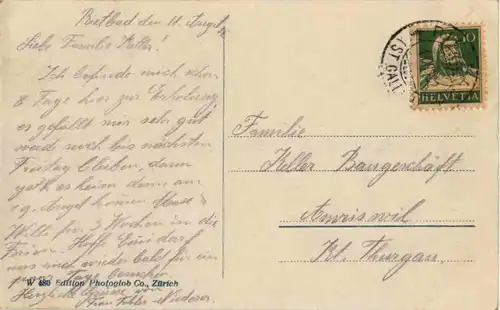 Rietbad den 11. Augst
Liebe Familie Keller!
Ich befinde mich schon
8 Tage hier zur Erholung
es gefällt mir sehr gut
werde noch bis nächsten
Freitag bleiben, dann
geht es heim denn am
19. Augst kommen
Willi für 3 Wochen in die
Ferien. Hoffe Emi darf
uns auch wieder bald für ein
paar Tage besuchen
Herzliche Grüsse von
Frau Niederer
W 480 Edition Photoglob Co., Zürich
10
HELVETIA
(ST. GAL
Familie
Keller Baugeschäft
Amriswil
Kt. Thurgau